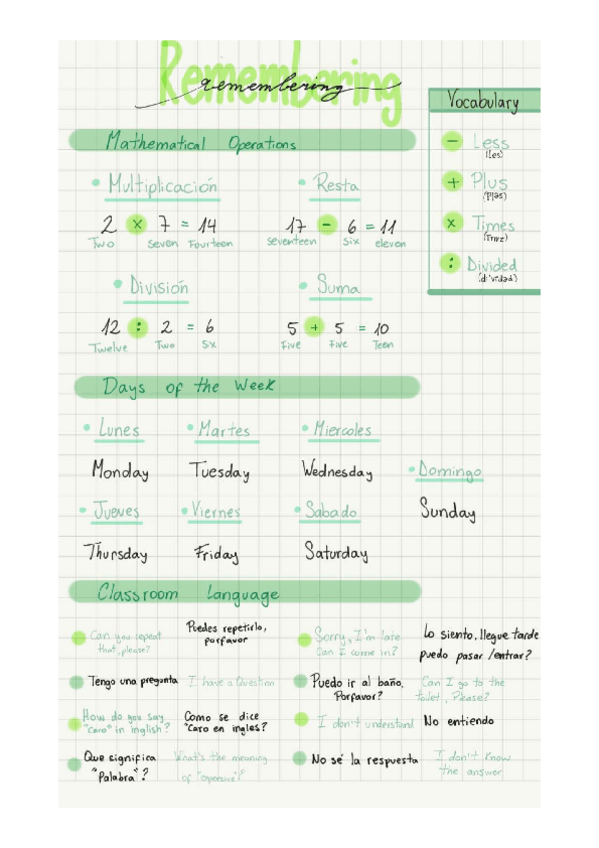 Remembering
remembering
Vocabulary
- Less
(les)
+ Plus
(plas)
x Times
: Divided
Mathematical Operations
• Multiplicación
2 x 7 = 14
Two Seven Fourteen
• Resta
17 - 6 = 11
seventeen six eleven
• División
12 : 2 = 6
Twelve Two Six
• Suma
5 + 5 = 10
Five Five Teen
Days of the Week
• Lunes
Monday
• Martes
Tuesday
• Miercoles
Wednesday
• Jueves
Thursday
• Viernes
Friday
• Sabado
Saturday
• Domingo
Sunday
Classroom Language
Can you repeat
that, please?
Puedes repetirlo,
porfavor
Sorry, I'm late
Can I come in?
Lo siento, llegue tarde
puedo pasar /entrar?
Tengo una pregunta
I have a Question
Puedo ir al baño,
Porfavor?
Can I go to the
toilet, Please?
How do you say
"Caro" in inglish?
Como se dice
"Caro en ingles?
I don't understand
No entiendo
Que significa
"Palabra"?
What's the meaning
of
No sé la respuesta
I don't know
the answer